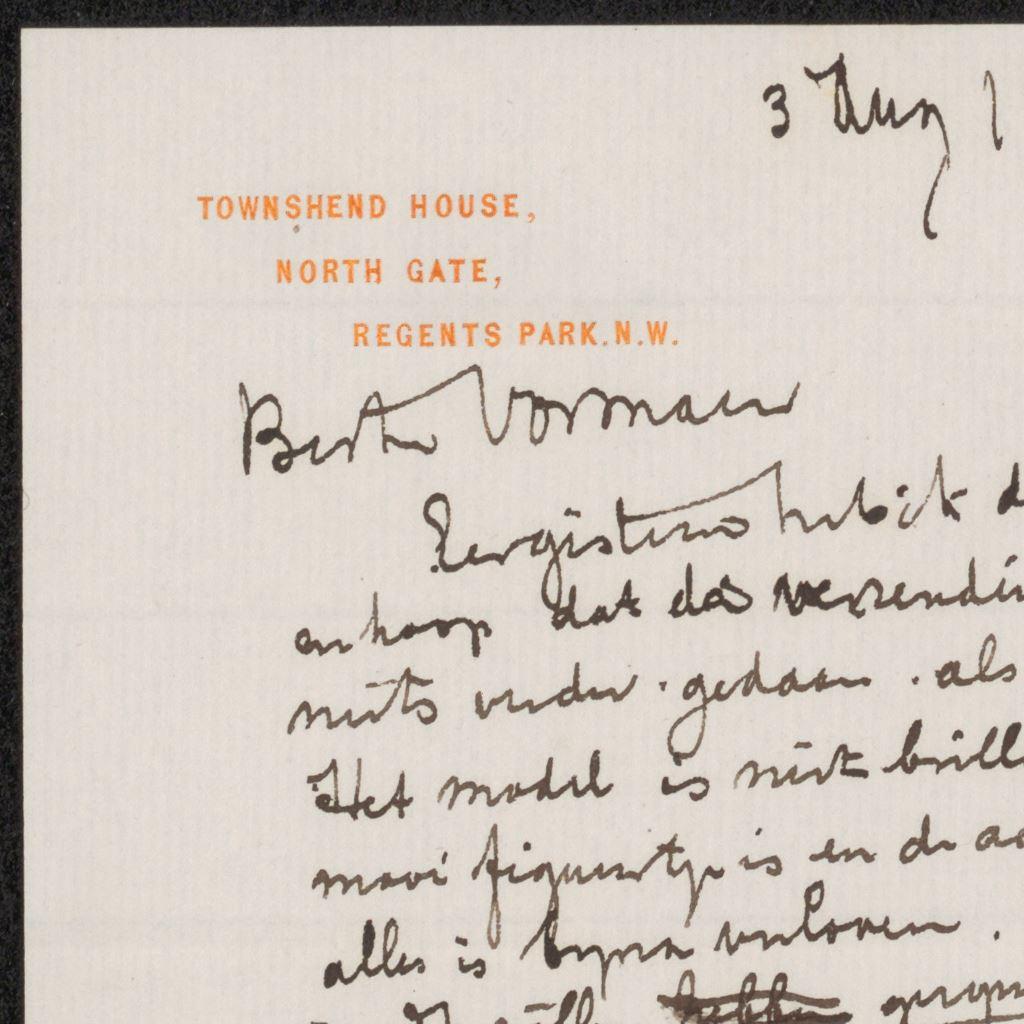 3 Aug 1
TOWNSHEND HOUSE,
NORTH GATE,
REGENTS PARK. N.W.
Beste Vosmaer
Eergisteren heb ik d
en hoop dat de verzendin
niets verder gedaan. als
Het model is niet brill
mooi figuurtje is en de
alles is byna verloren.
hebben